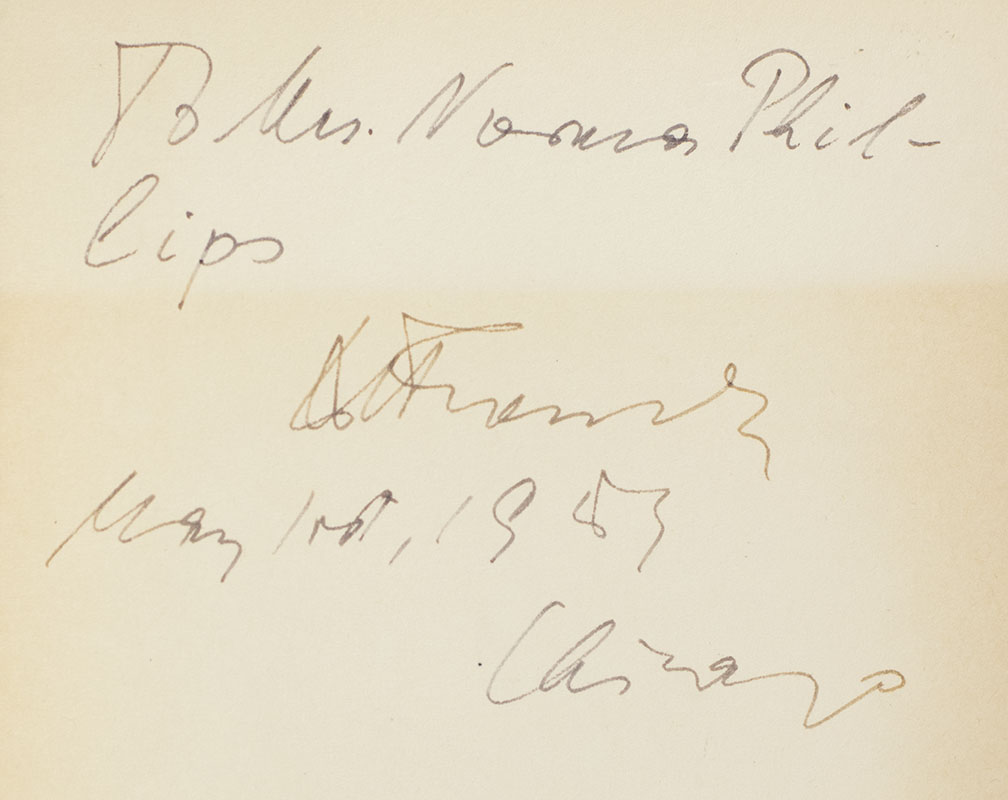 To Mrs. Norma Phil-
lips
May 1st, 19
Chicago